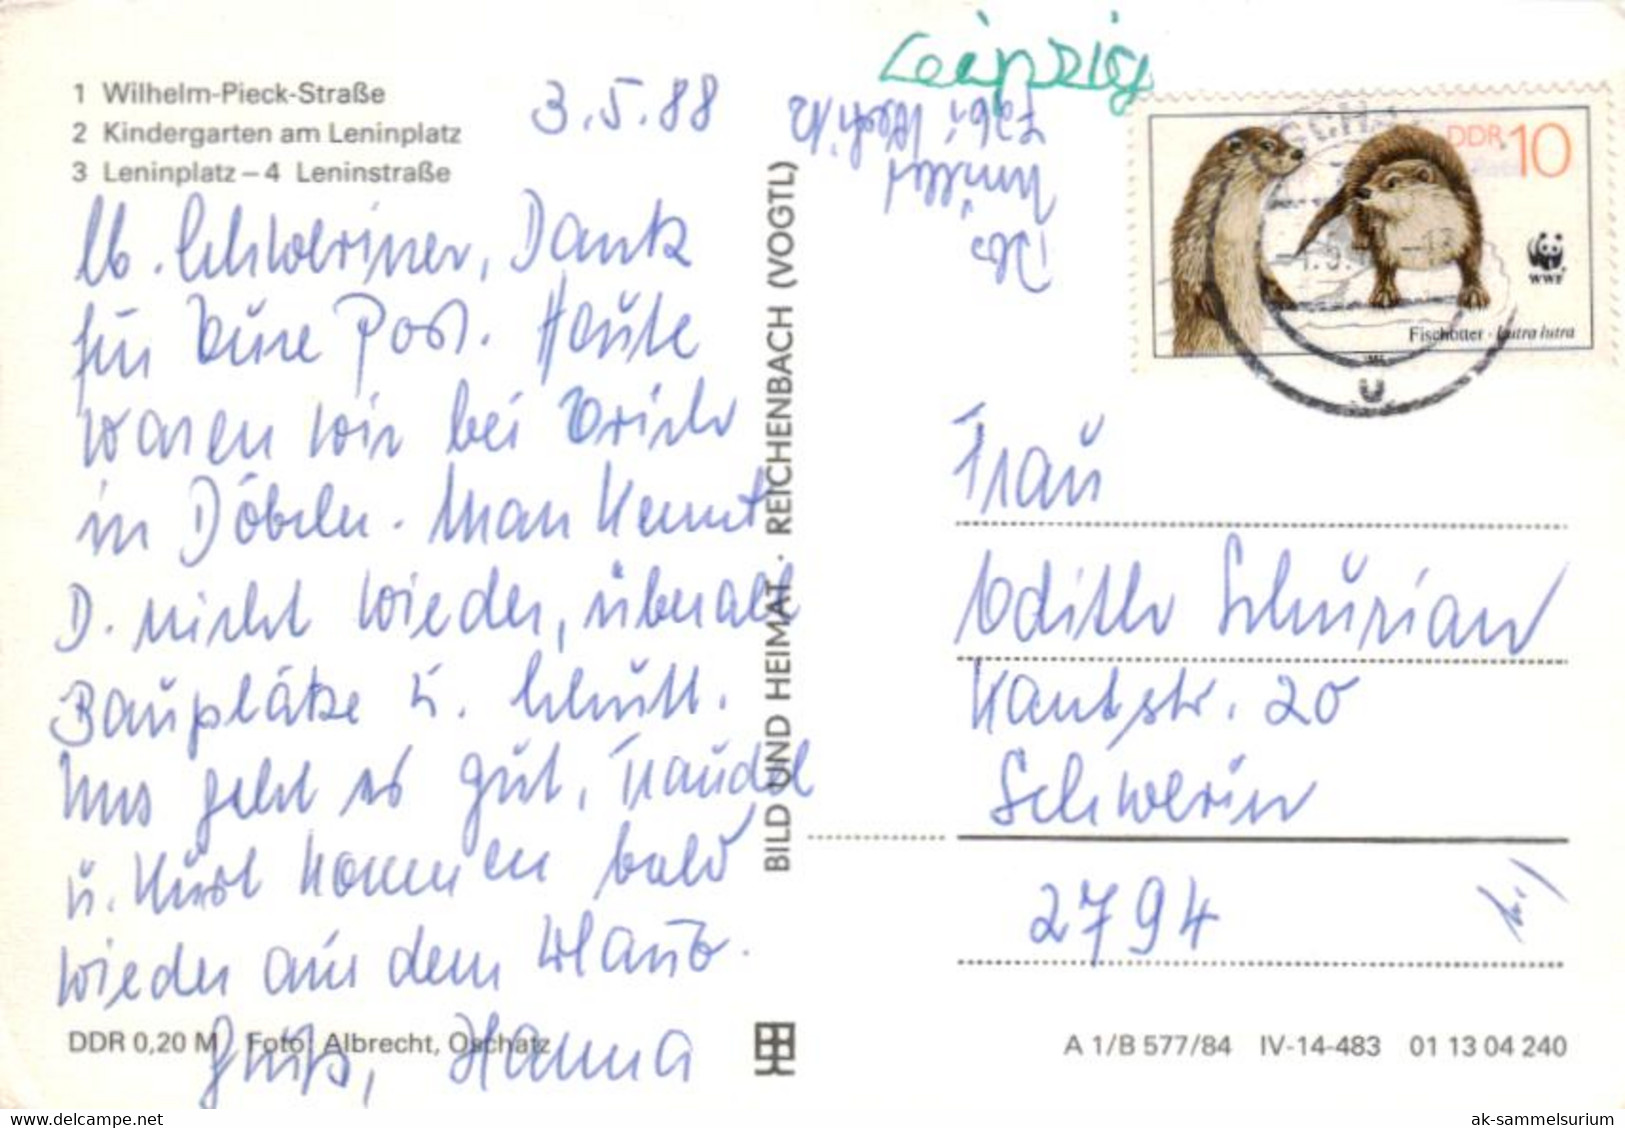 Leipzig
1 Wilhelm-Pieck-Straße
2 Kindergarten am Leninplatz
3 Leninplatz – 4 Leninstraße
3.5.88
Lb. Schweriner, Dank
für Eure Post. Heute
waren wir bei Erich
in Döbeln. Man kennt
D. nicht wieder, überall
Bauplätze u. Schutt.
Uns geht es gut, Traudel
u. Kurt kommen bald
wieder aus dem Urlaub.
Gruß, Hanna
DDR 0,20 M Foto: Albrecht, Oschatz
BILD UND HEIMAT · REICHENBACH (VOGTL)
DDR 10
WWF
Fischotter · Lutra lutra
u
Frau
Edith Schurian
Kantstr. 20
Schwerin
2794
A 1/B 577/84 IV-14-483 01 13 04 240
ak-sammelsurium